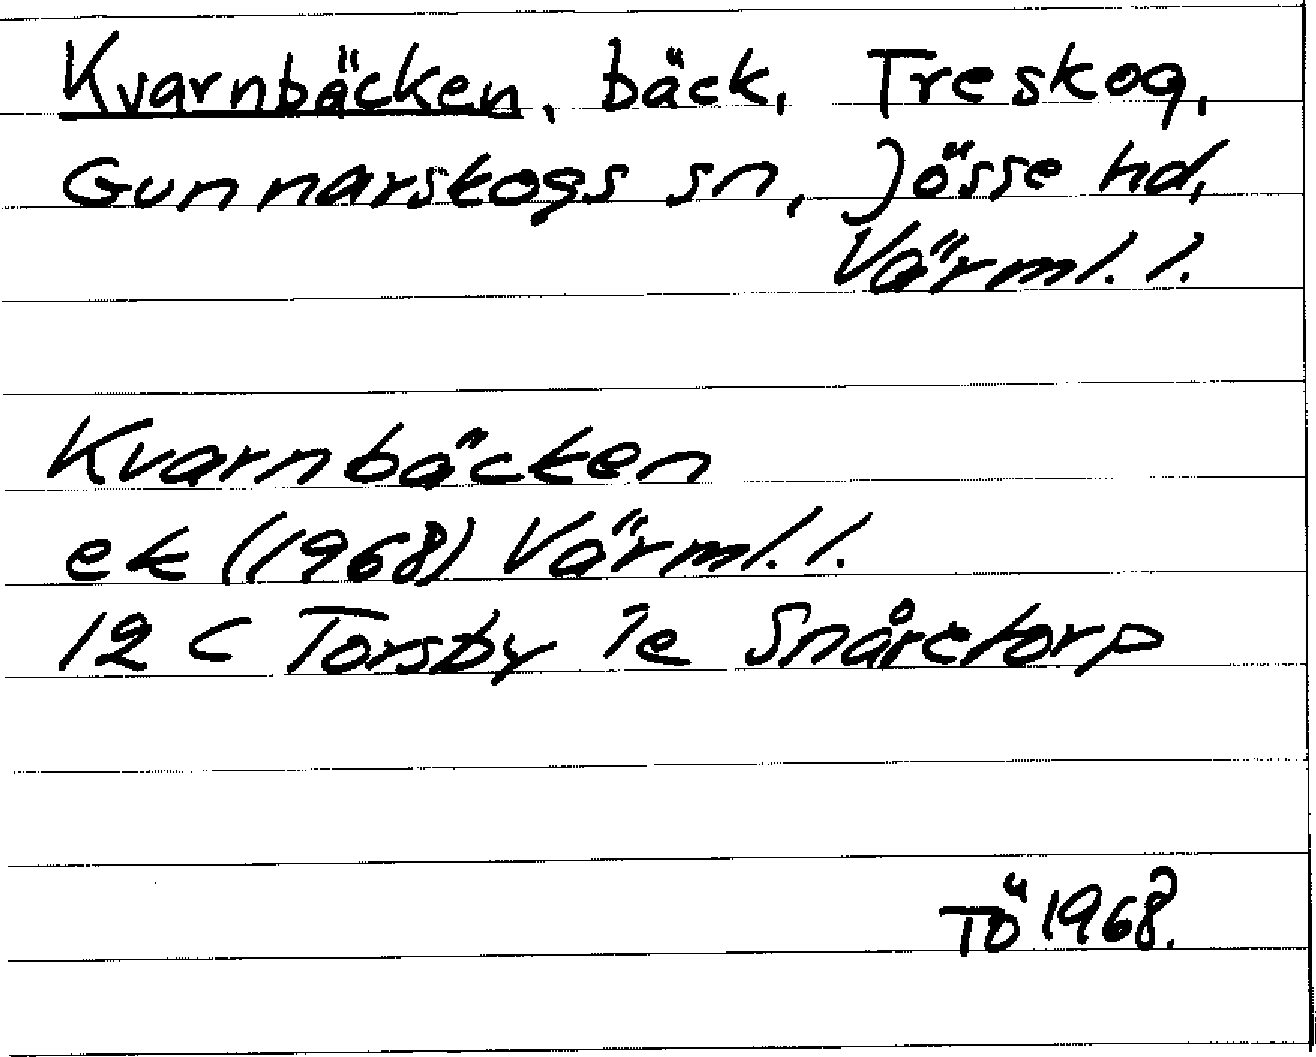 Kvarnbäcken, bäck, Treskog,
Gunnarskogs sn, Jösse hd,
Värml. l.
Kvarnbäcken
ek (1968) Värml. l.
12 C Torsby 1e Snåretorp
TÖ 1968.